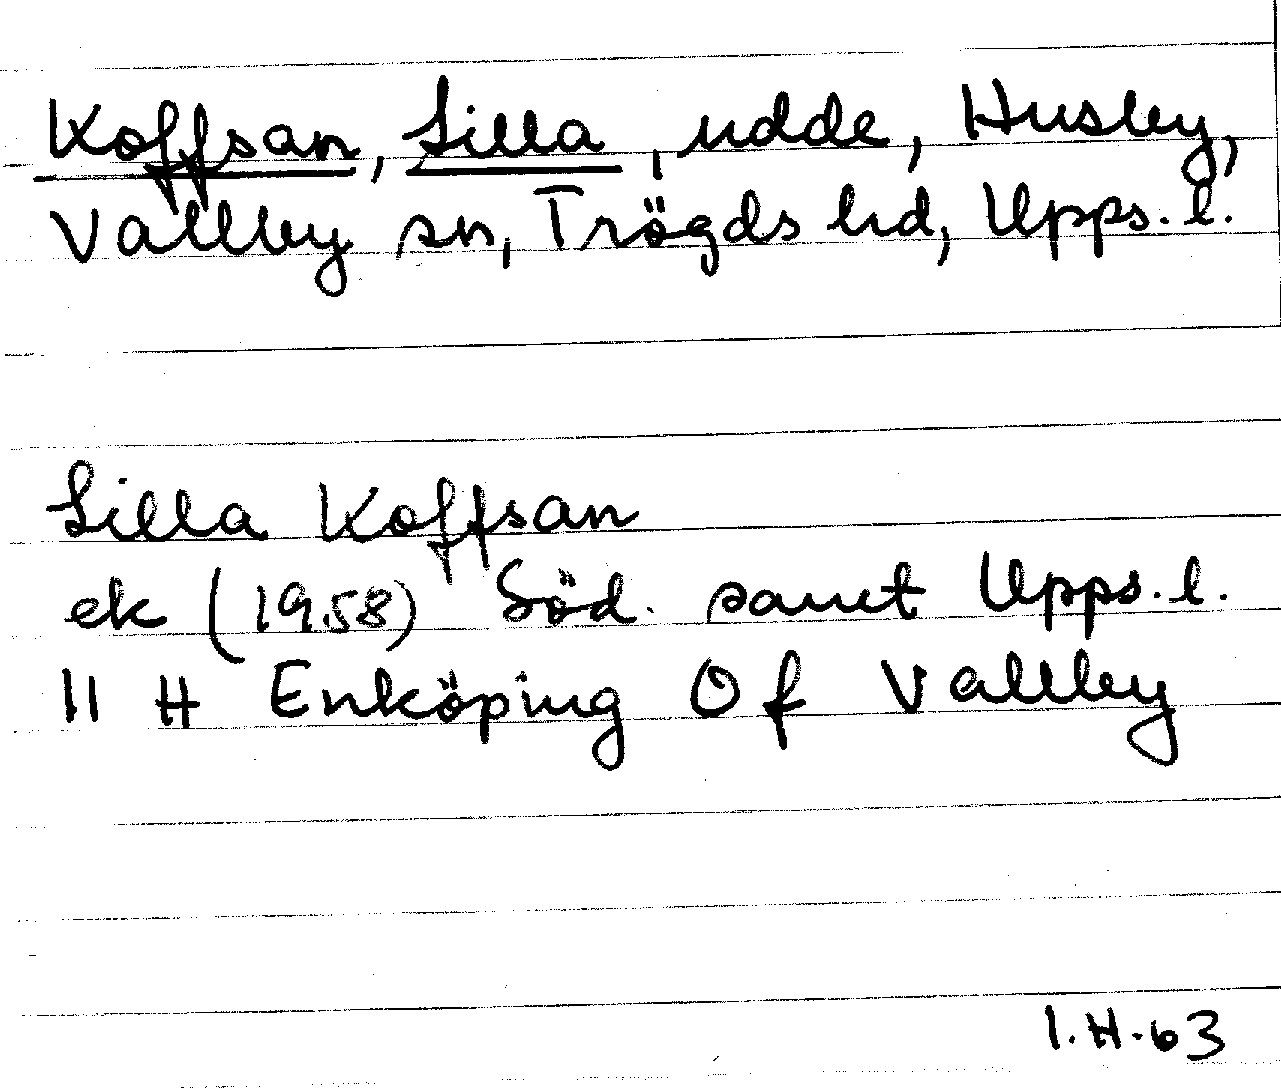 Koffsan, Lilla, udde, Husby,
Vallby sn, Trögds hd, Upps. l.
Lilla Koffsan
ek (1958) Söd. samt Upps. l.
11 H Enköping Of Vallby
I.H-63